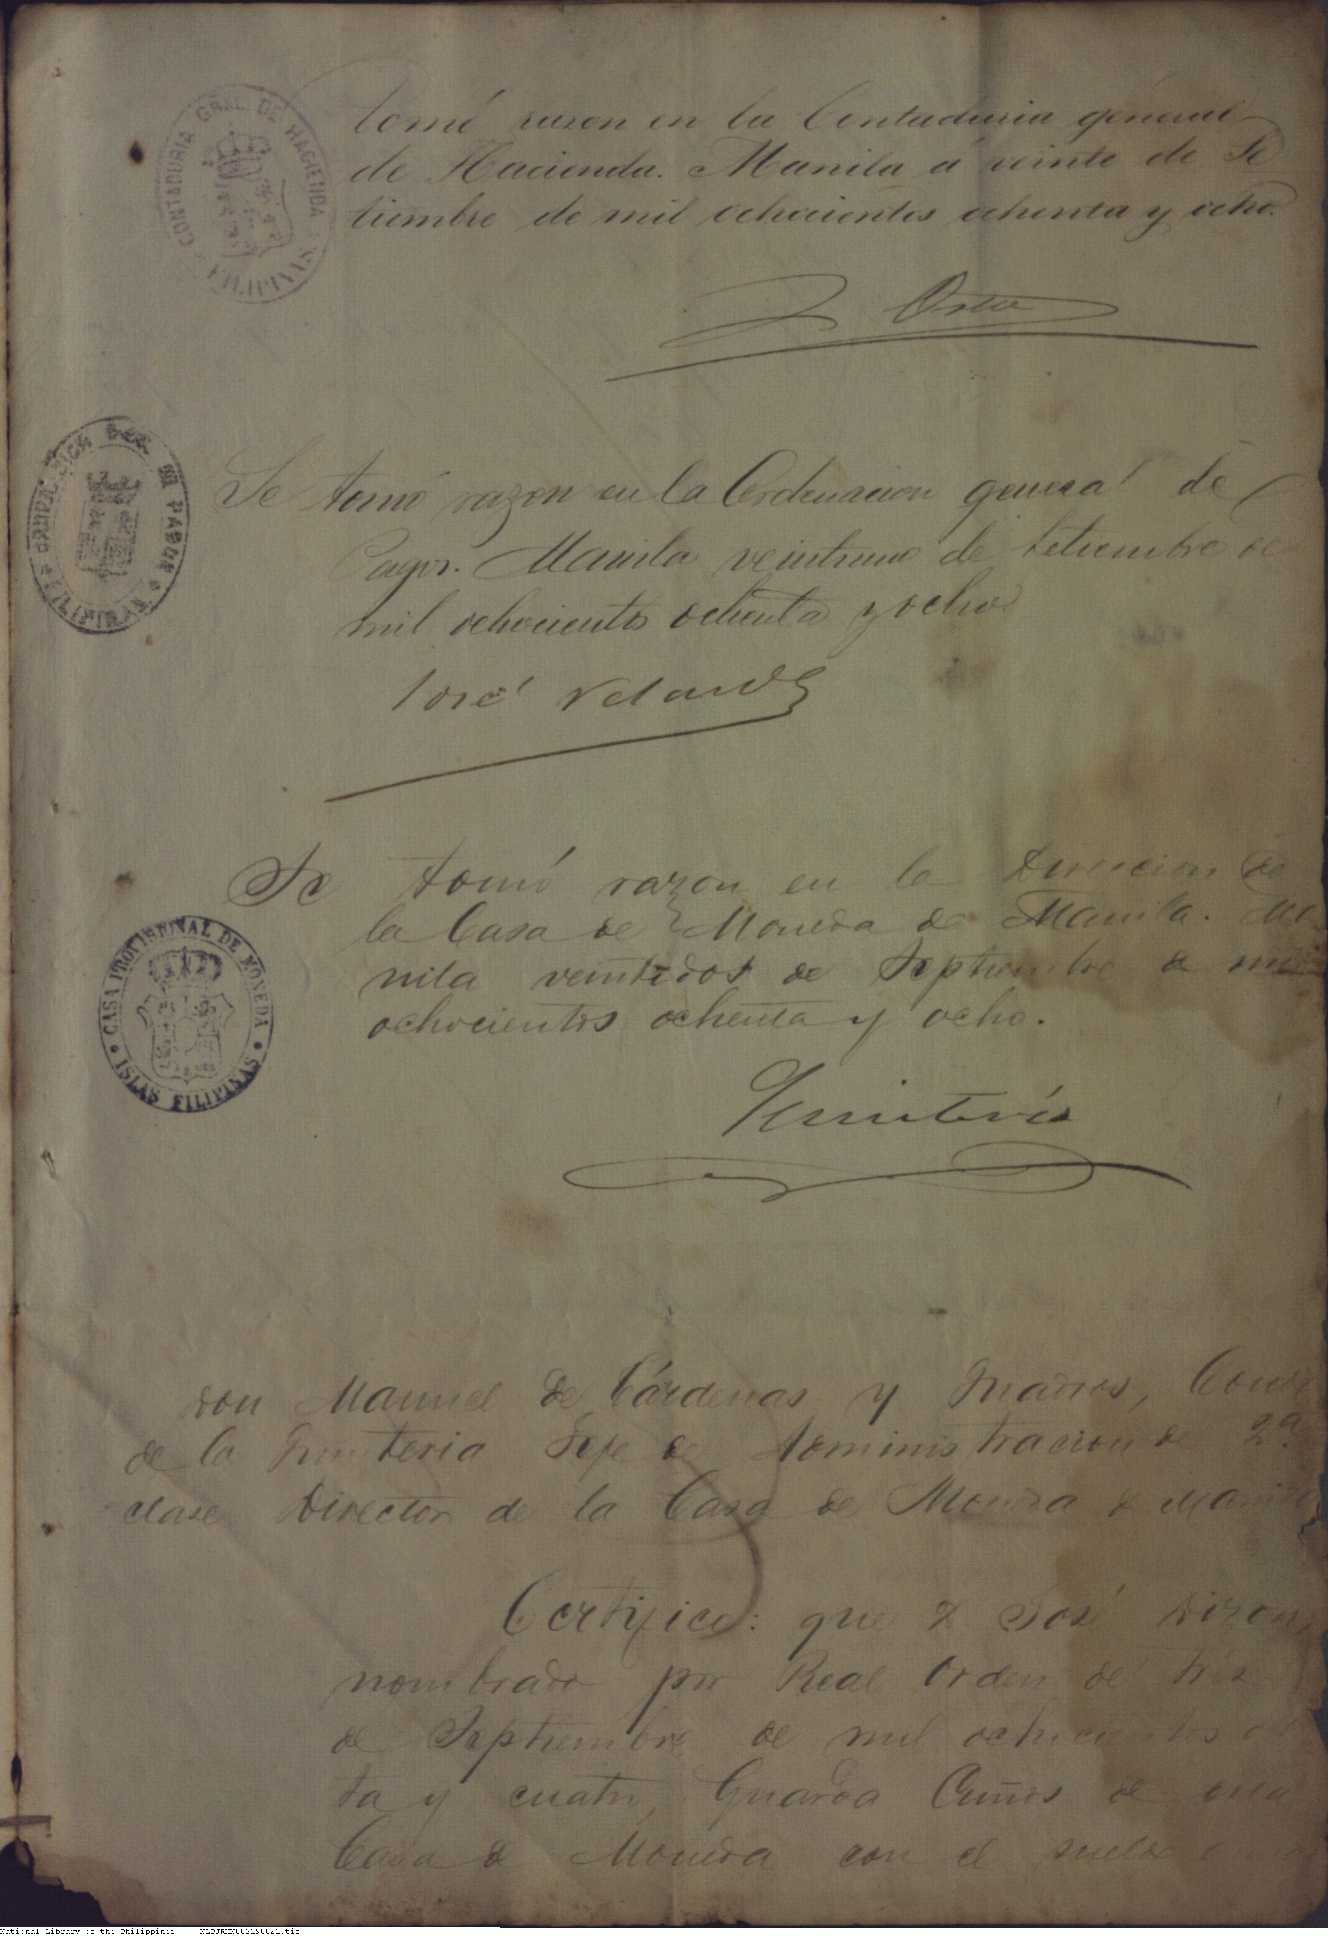 CONTADURIA GRAL. DE HACIENDA
FILIPINAS
tomó razon en la Contaduria general
de Hacienda. Manila á veinte de Se
tiembre de mil ochocientos ochenta y ocho.
FILIPINAS
Se tomó razon en la Ordenacion general de
Pagos. Manila veintiuno de Setiembre de
mil ochocientos ochenta y ocho
José Velarde
Se tomó razon en la Direccion de
la Casa de Moneda de Manila. Ma
nila veintidos de Septiembre de mil
ochocientos ochenta y ocho.
CASA PROVISIONAL DE MONEDA
ISLAS FILIPINAS
Don Manuel de Cárdenas y Conde
de la Jefe de Administracion de 2ª
clase Director de la Casa de Moneda de Manila
Certifico: que D. José Dizon,
nombrado por Real Orden de tres
de Septiembre de mil ochocientos
ta y cuatro, Guarda Cuños de
Casa de Moneda con el sueldo
National Library of the Philippines